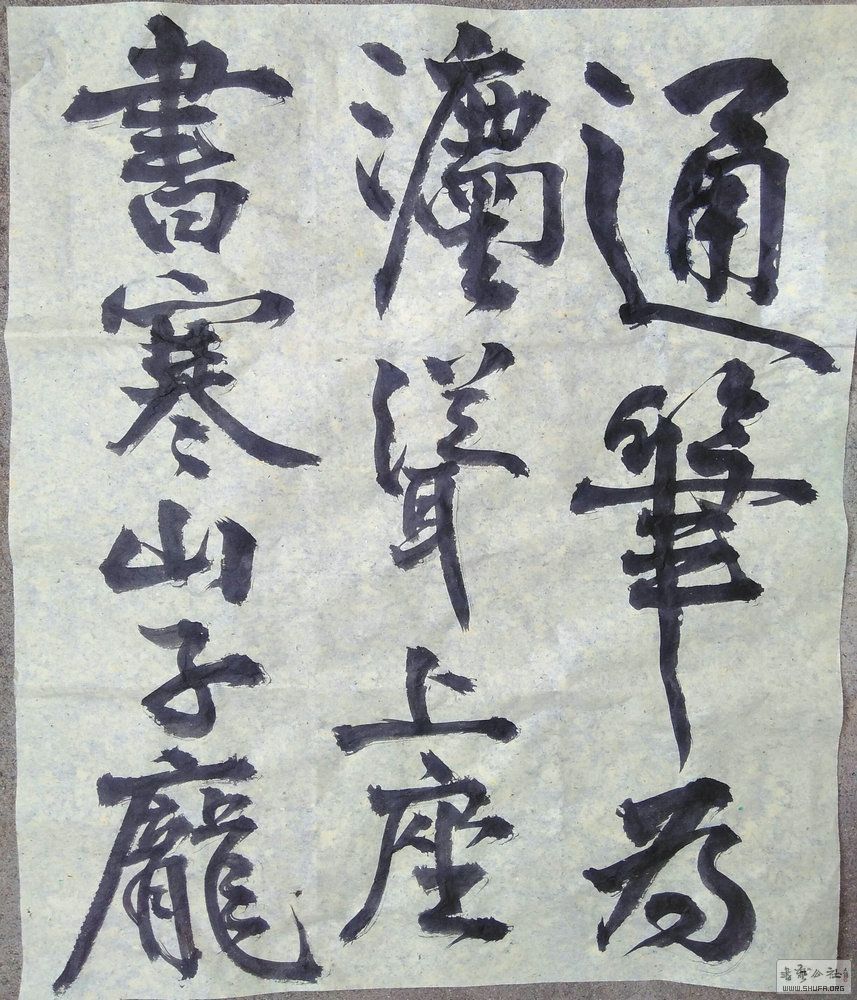 通筆為
灋聳上座
書寒山子龐
書藝公社
WWW.SHUFA.ORG